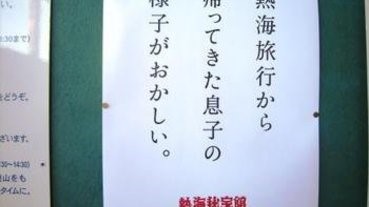 熱海旅行から
帰ってきた息子の
様子がおかしい。
熱海秘宝館
:30まで)
をどうぞ。
ざいます。
:30~14:30)
山をも
タイムに。